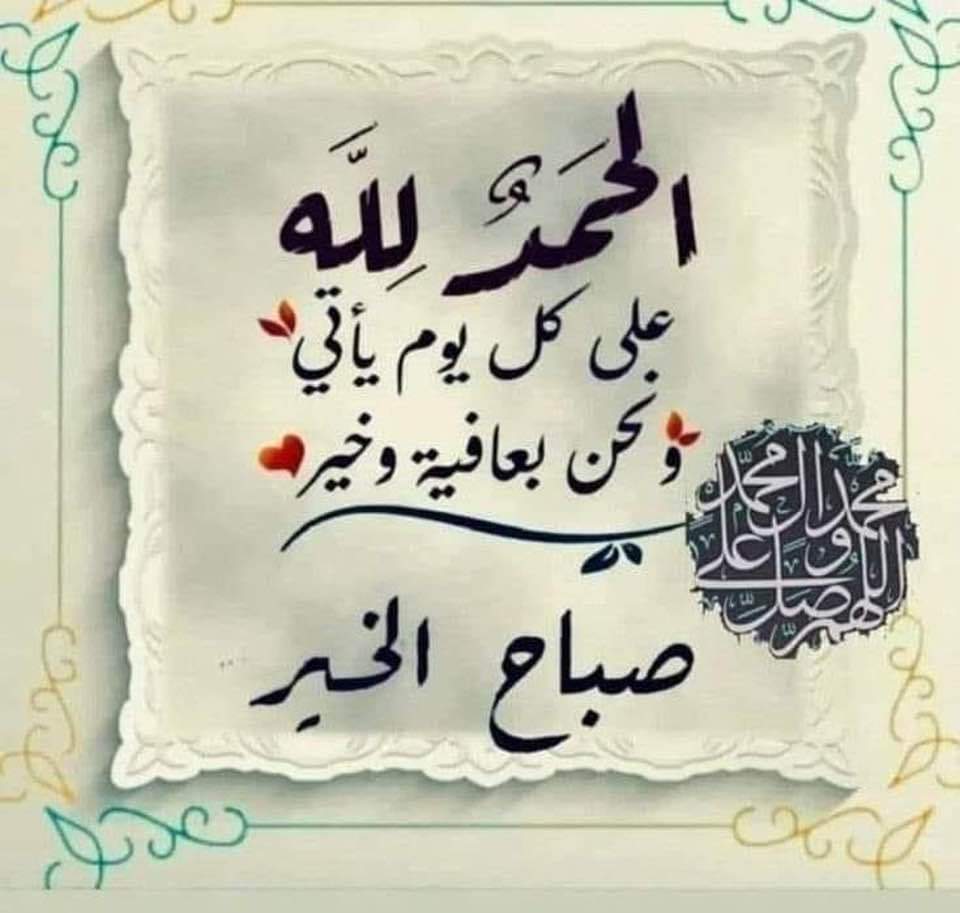 الحَمَدُ لِلَّه
على كل يوم يأتي
ونحن بعافية وخير
صباح الخير
اللهم صل على محمد وال محمد